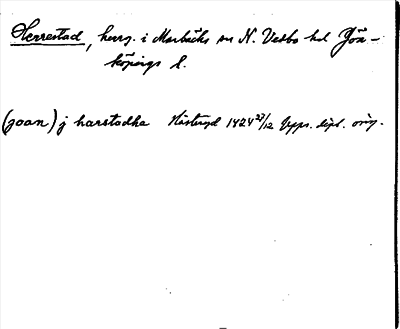 Herrestad, herrg. i Marbäcks sn N. Vedbo hd Jön-
köpings l.
(joan) j harstadha Hästeryd 1424 27/12 Upps. dipl. orig.